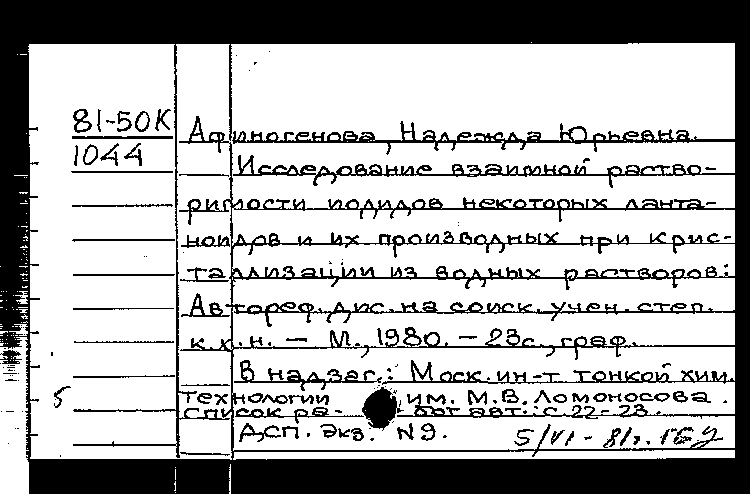 81-50К Афиногенова, Надежда Юрьевна.
1044 Исследование взаимной раство-
римости иодидов некоторых ланта-
ноидов и их производных при крис-
таллизации из водных растворов:
Автореф. дис. на соиск. учен. степ.
к.х.н. – М., 1980. – 23с., граф.
В надзаг.: Моск. ин-т тонкой хим.
5 технологии им. М.В. Ломоносова.
список ра- бот авт.: с. 22-23.
ДСП. Экз. N9.
5/VI - 81г.